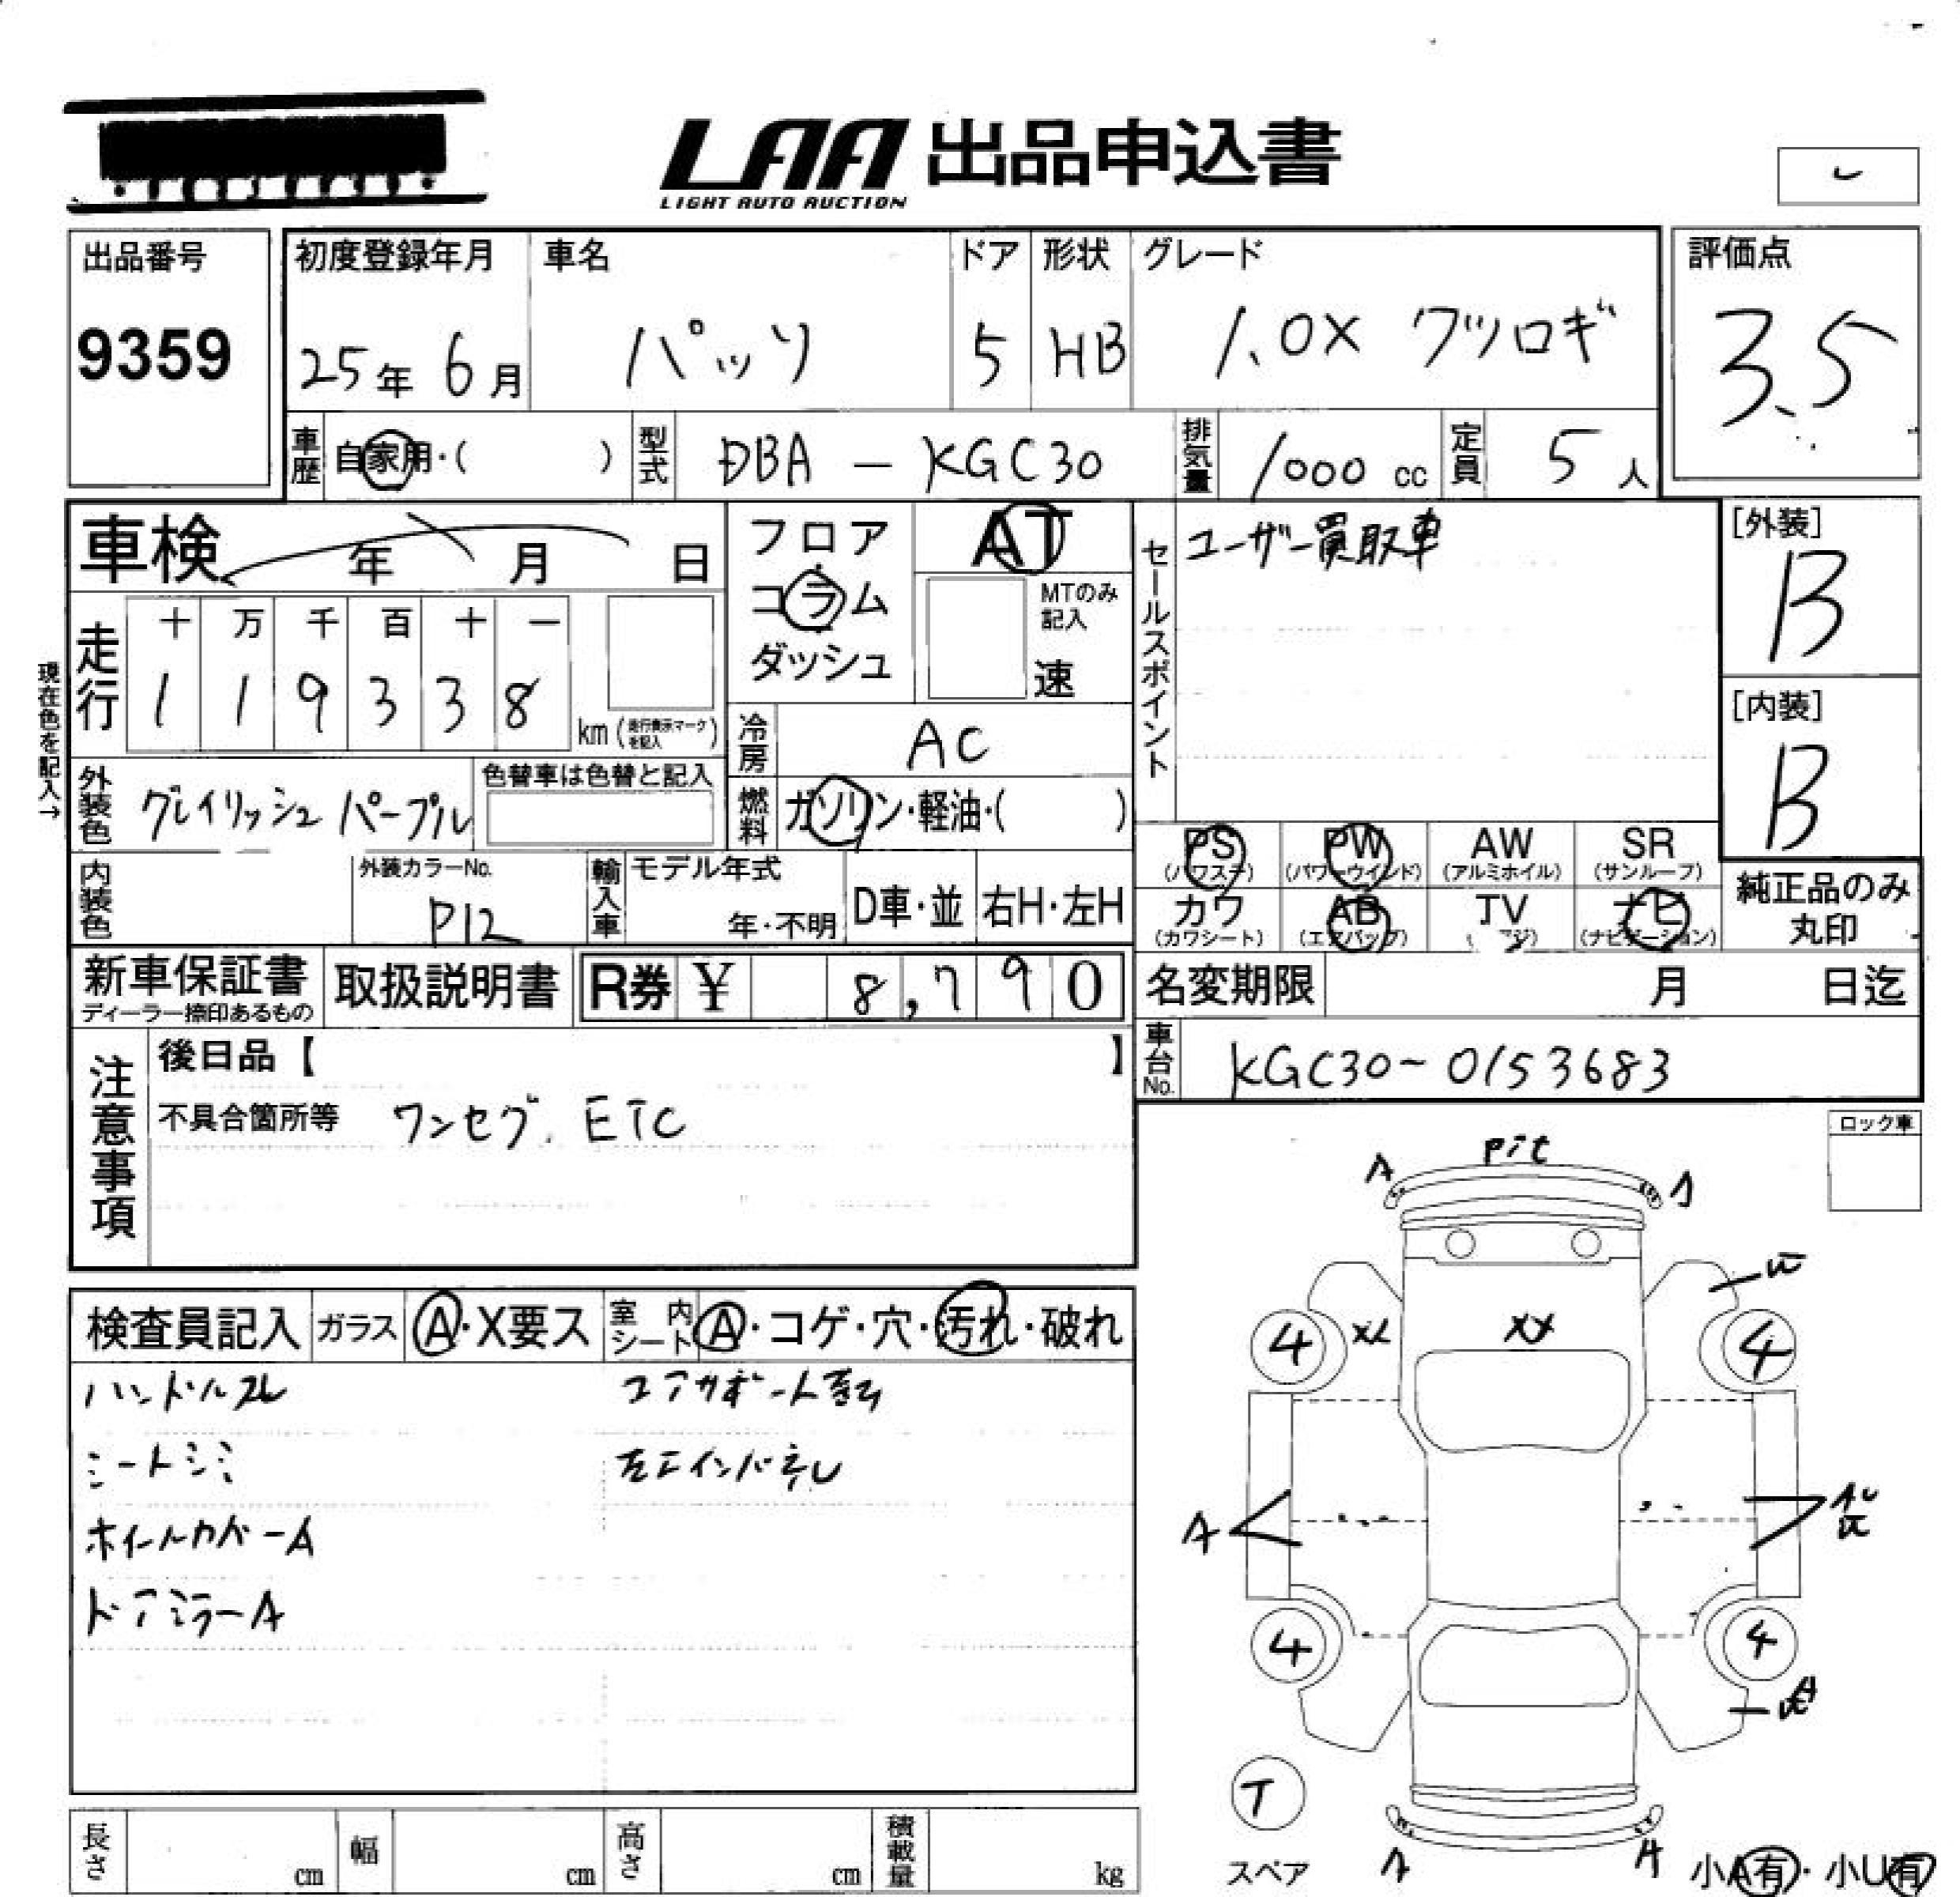 LAA 出品申込書
LIGHT AUTO AUCTION
出品番号
9359
初度登録年月
25年 6月
車名
パッソ
ドア
5
形状
HB
グレード
1.0X クツロギ
評価点
3.5
車歴 自家用・( )
型式 DBA - KGC30
排気量 1000 cc
定員 5 人
車検 年 月 日
フロア
コラム
ダッシュ
AT
MTのみ記入
速
セールスポイント
ユーザー買取車
[外装]
B
[内装]
B
現在色を記入→
走行
十 万 千 百 十 一
1 1 9 3 3 8
km (走行表示マークを記入)
冷房 AC
外装色 グレイリッシュ パープル
色替車は色替と記入
燃料 ガソリン・軽油・( )
PS PW AW SR
(パワステ) (パワーウインド) (アルミホイル) (サンルーフ)
カワ AB TV ナビ
(カワシート) (エアバッグ) (ナビゲーション)
純正品のみ
丸印
内装色
外装カラーNo.
P12
輸入車
モデル年式
年・不明
D車・並
右H・左H
新車保証書
ディーラー捺印あるもの
取扱説明書
R券 ¥ 8,790
名変期限 月 日迄
車台No. KGC30-0153683
注意事項
後日品【 】
不具合箇所等 ワンセグ. ETC
ロック車
検査員記入
ガラス A・X要ス
室内シート A・コゲ・穴・汚れ・破れ
ハンドルスレ
コアサポート
シートシミ
ホイールカバーA
ドアミラーA
Pit
A
XX
4
4
A
4
4
T
スペア
A
A
小A有・小U有
長さ cm
幅 cm
高さ cm
積載量 kg